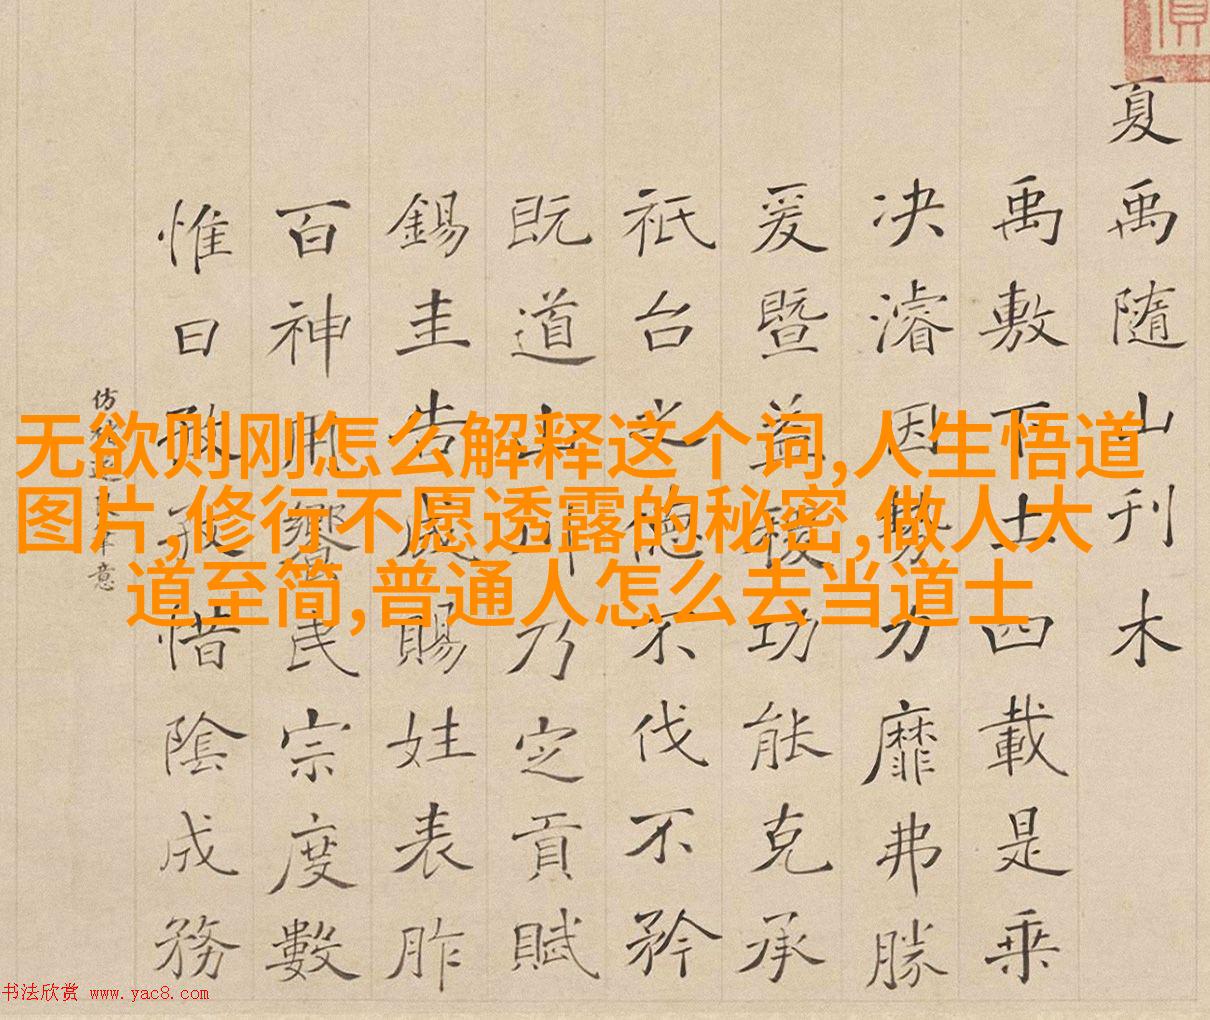 夏禹隨山刊木
禹敷下土四載是乘
决濬因勢力靡弗勝
爰暨益稷功能克承
祇台德不伐不矜
既道山川乃定貢賦
錫圭告成賜姓表胙
百神饗民宗度數
惟日孜孜惜陰成務
仿意
无欲则刚怎么解释这个词,人生悟道
图片,修行不愿透露的秘密,做人大
道至简,普通人怎么去当道士
书法欣赏 www.yac8.com